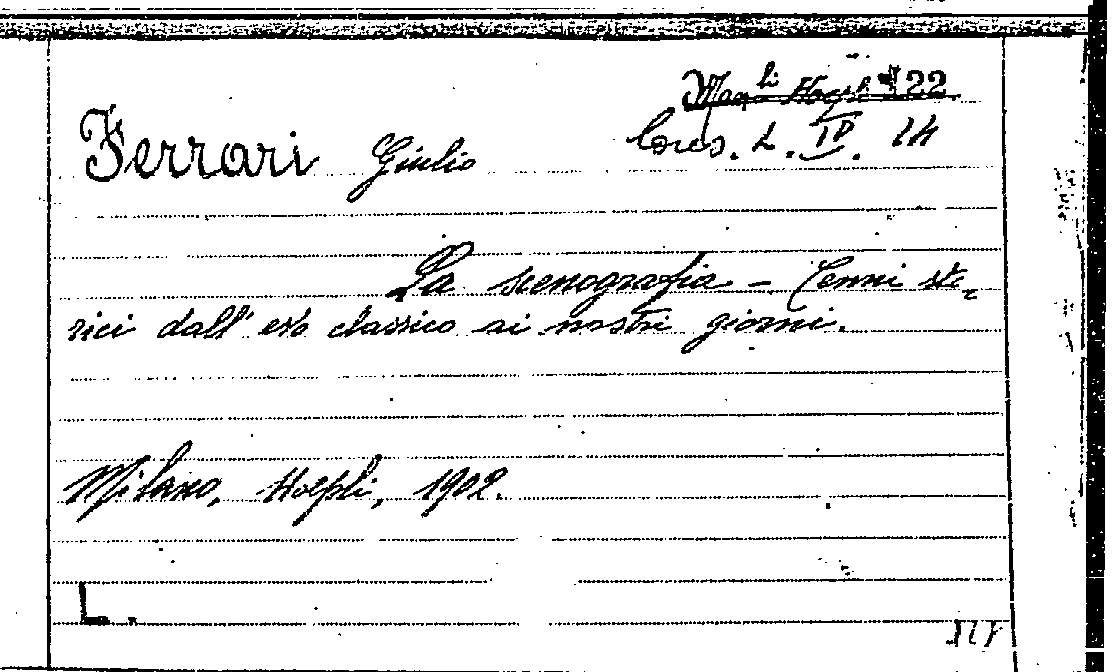 Man.li Hoepli 322
Ferrari Giulio
Cons. L. IV. 14
La scenografia - Cenni sto-
rici dall' evo classico ai nostri giorni.
Milano, Hoepli, 1902.
L.